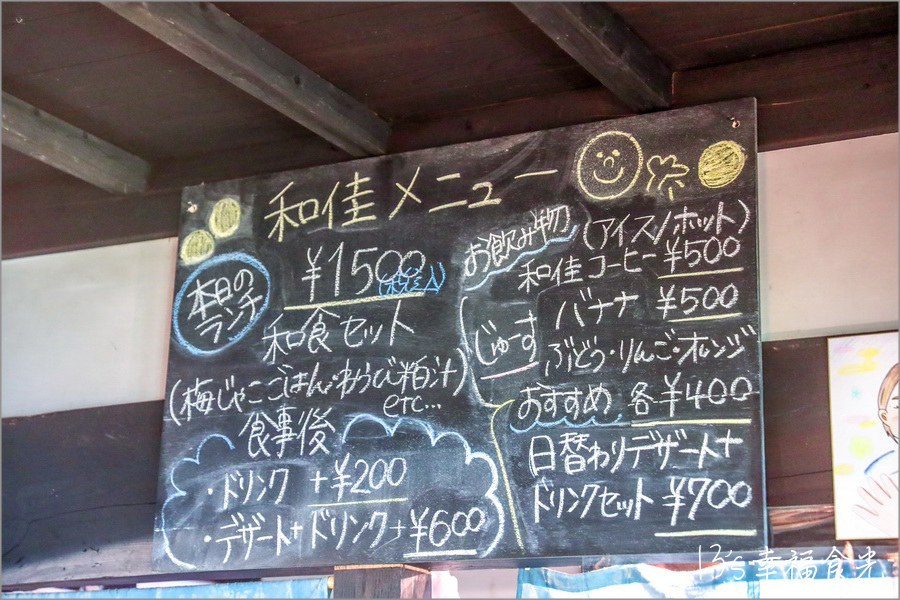 和佳メニュー
本日の
ランチ
¥1500
(税込)
和食セット
(梅じゃこごはん・わらび粕汁)
etc…
食事後
・ドリンク +¥200
・デザート+ドリンク+¥600
お飲み物 (アイス/ホット)
和佳コーヒー ¥500
じゅーす
バナナ ¥500
ぶどう・りんご・オレンジ
各¥400
おすすめ
日替わりデザート+
ドリンクセット ¥700
13's幸福食光